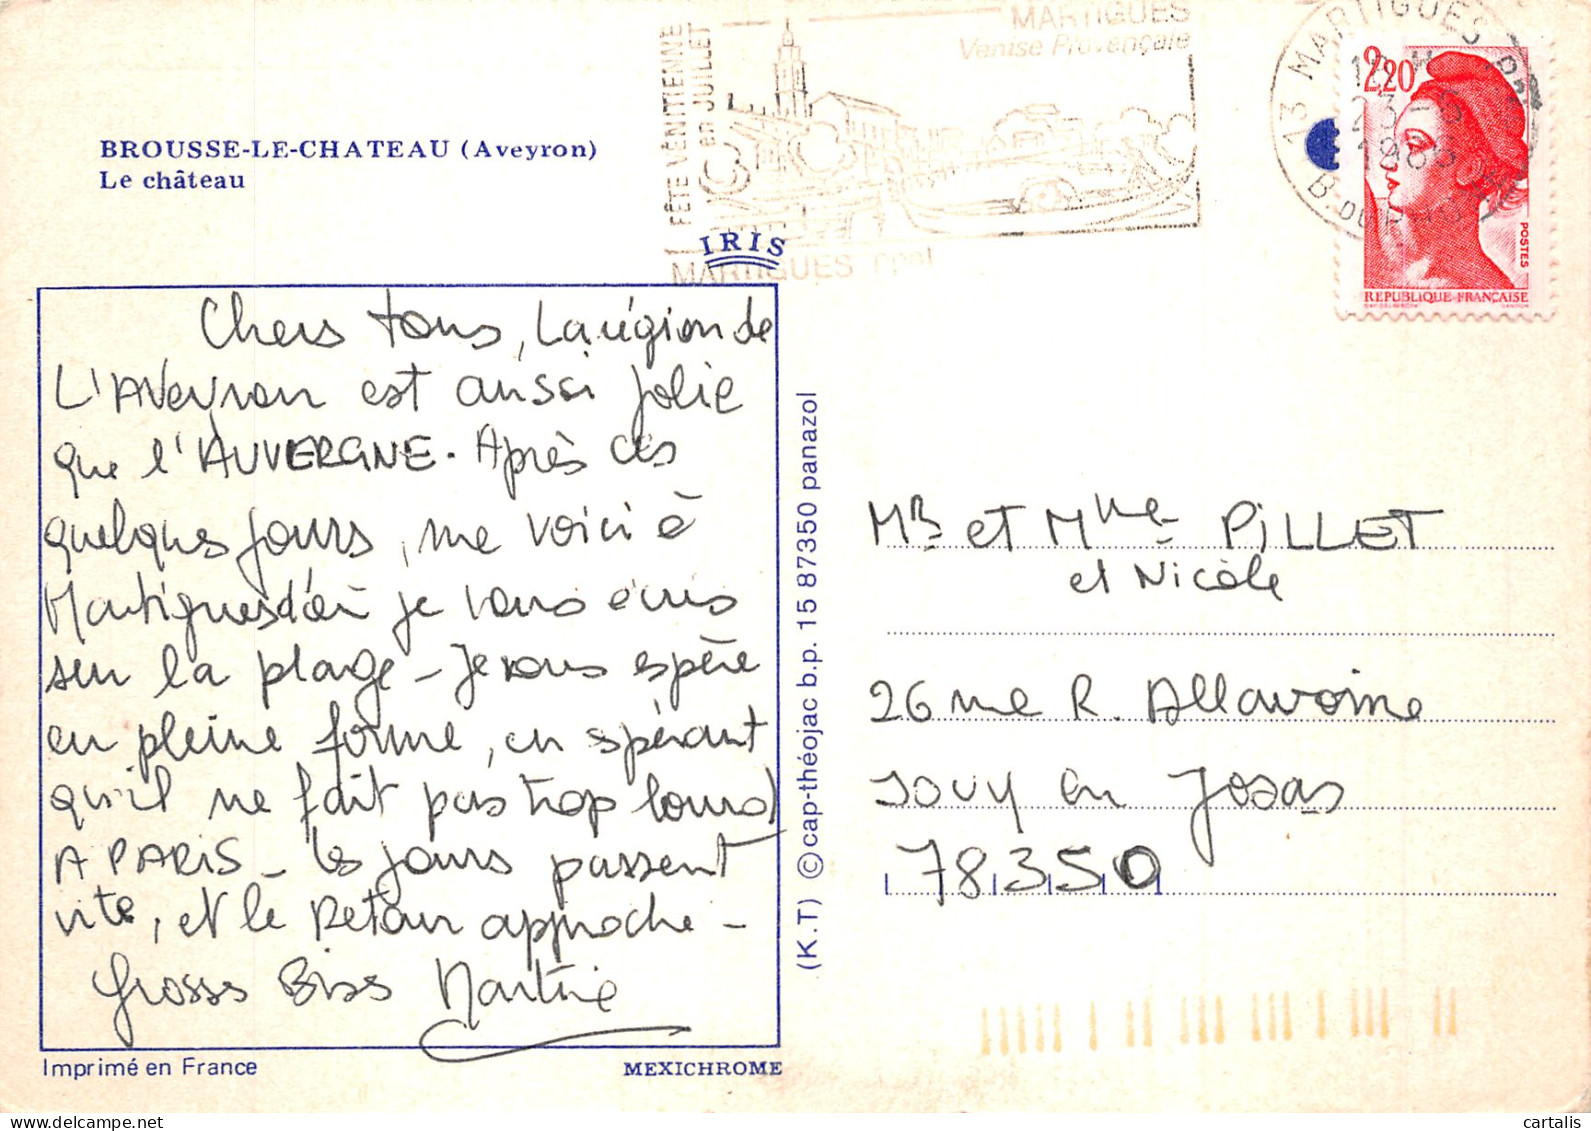 BROUSSE-LE-CHATEAU (Aveyron)
Le château
FÊTE VÉNITIENNE
en JUILLET
MARTIGUES
Venise Provençale
MARTIGUES ppal
13 MARTIGUES
B. DU RH.
2,20
POSTES
REPUBLIQUE FRANÇAISE
IRIS
Chers tous, La région de
L'AVeyron est aussi jolie
que l'AUVERGNE. Après ces
quelques jours, me voici à
Martigues d'où je vous écris
sur la plage - Je vous espère
en pleine forme, en espérant
qu'il ne fait pas trop lourd
A PARIS - les jours passent
vite, et le Retour approche -
Grosses Bises Martine
Imprimé en France
MEXICHROME
(K.T) ©cap-théojac b.p. 15 87350 panazol
MR et Mme PILLET
et Nicole
26 rue R. Allavoine
JOUY en Josas
78350
cartalis